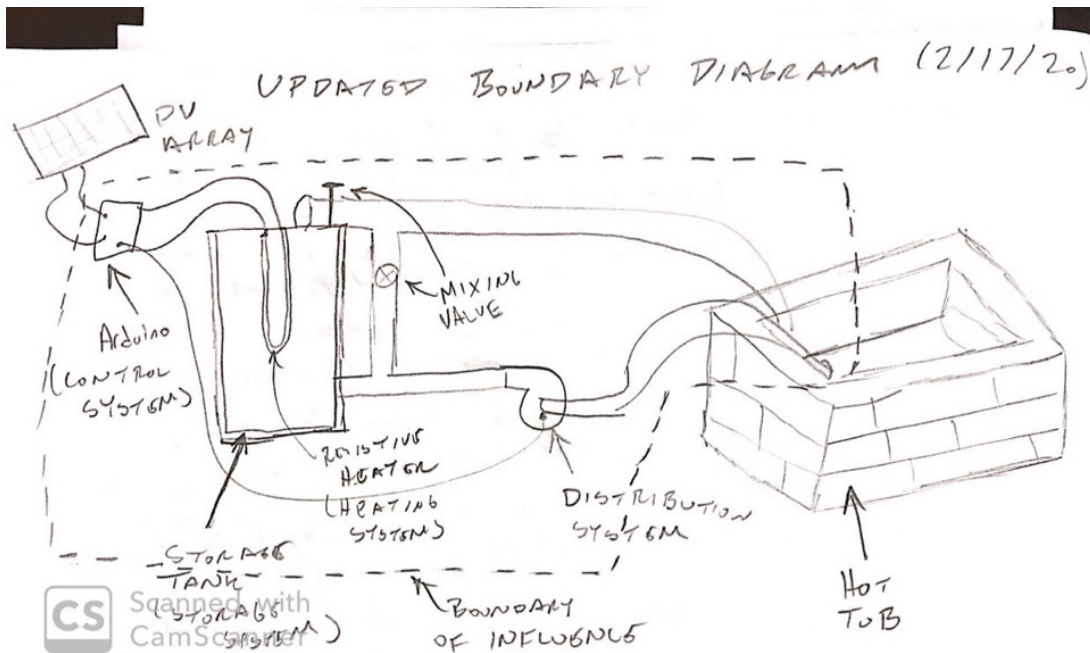 UPDATED BOUNDARY DIAGRAM (2/17/20)
PV
ARRAY
MIXING
VALVE
Arduino
(CONTROL
SYSTEM)
RESISTIVE
HEATER
(HEATING
SYSTEM)
DISTRIBUTION
SYSTEM
STORAGE
TANK
(STORAGE
SYSTEM)
BOUNDARY
OF INFLUENCE
HOT
TUB
CS
Scanned with
CamScanner